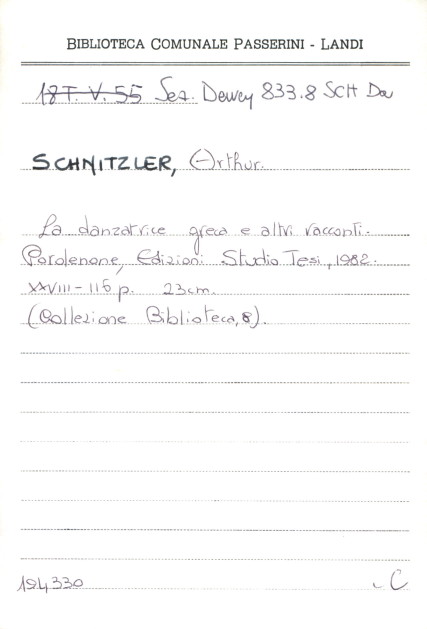 BIBLIOTECA COMUNALE PASSERINI - LANDI
18T. V. 55 Sez. Dewey 833.8 SCH Da
SCHNITZLER, Arthur.
La danzatrice greca e altri racconti.
Pordenone, Edizioni Studio Tesi, 1982.
XXVIII - 116 p. 23cm.
(Collezione Biblioteca, 8).
194330 C